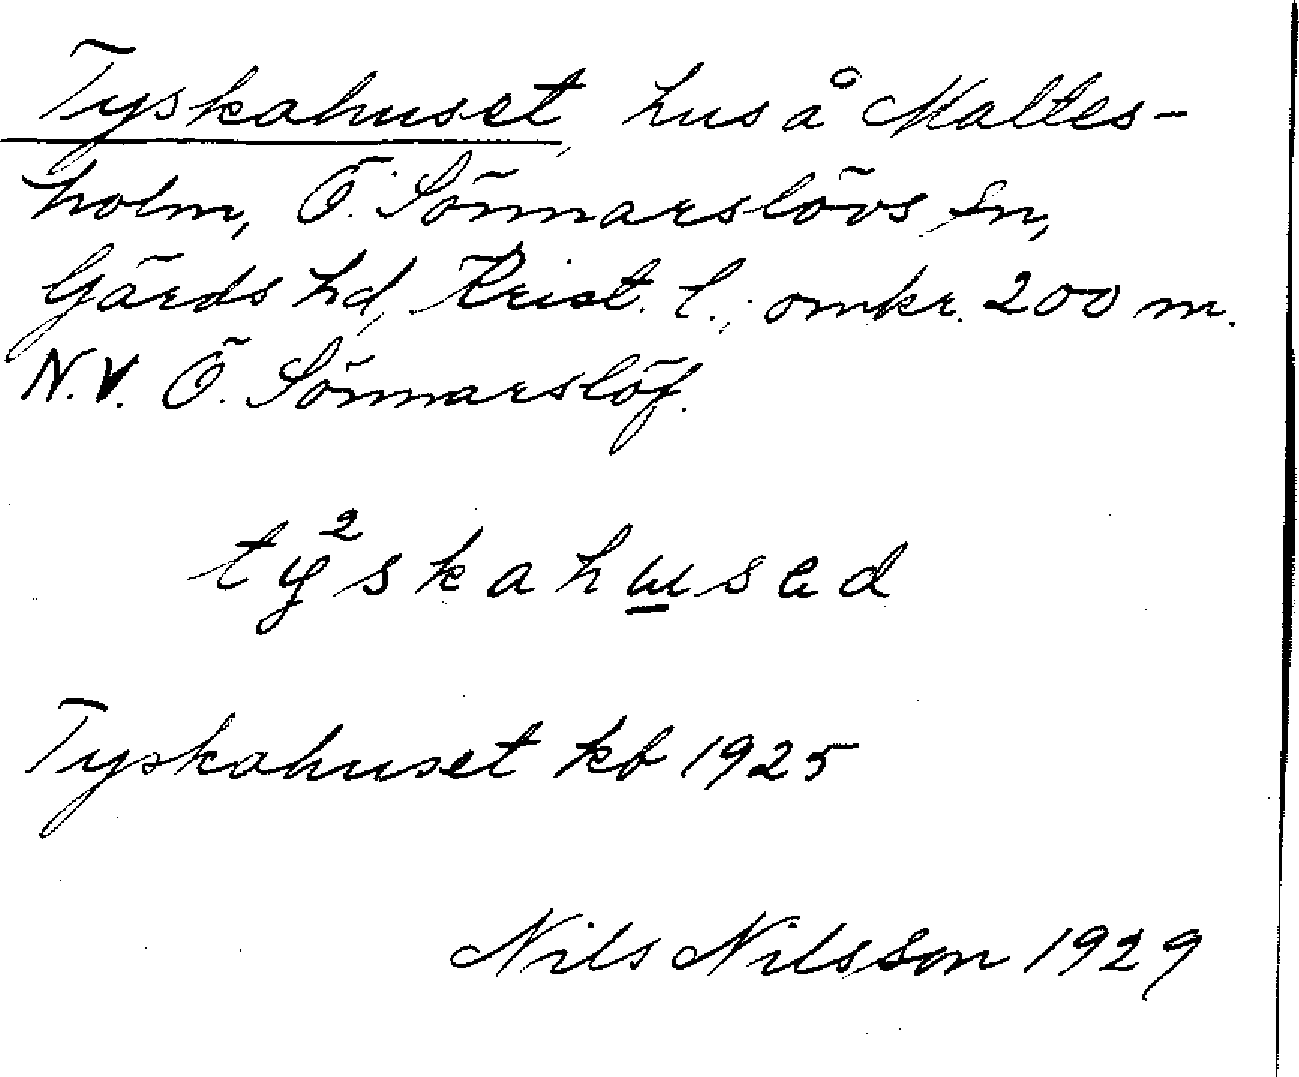 Tyskahuset, hus å Maltes-
holm, Ö. Sönnarslövs sn,
Gärds hd, Krist. l.; omkr. 200 m.
N.V. Ö. Sönnarslöf.
ty²skahusad
Tyskahuset kb 1925
Nils Nilsson 1929